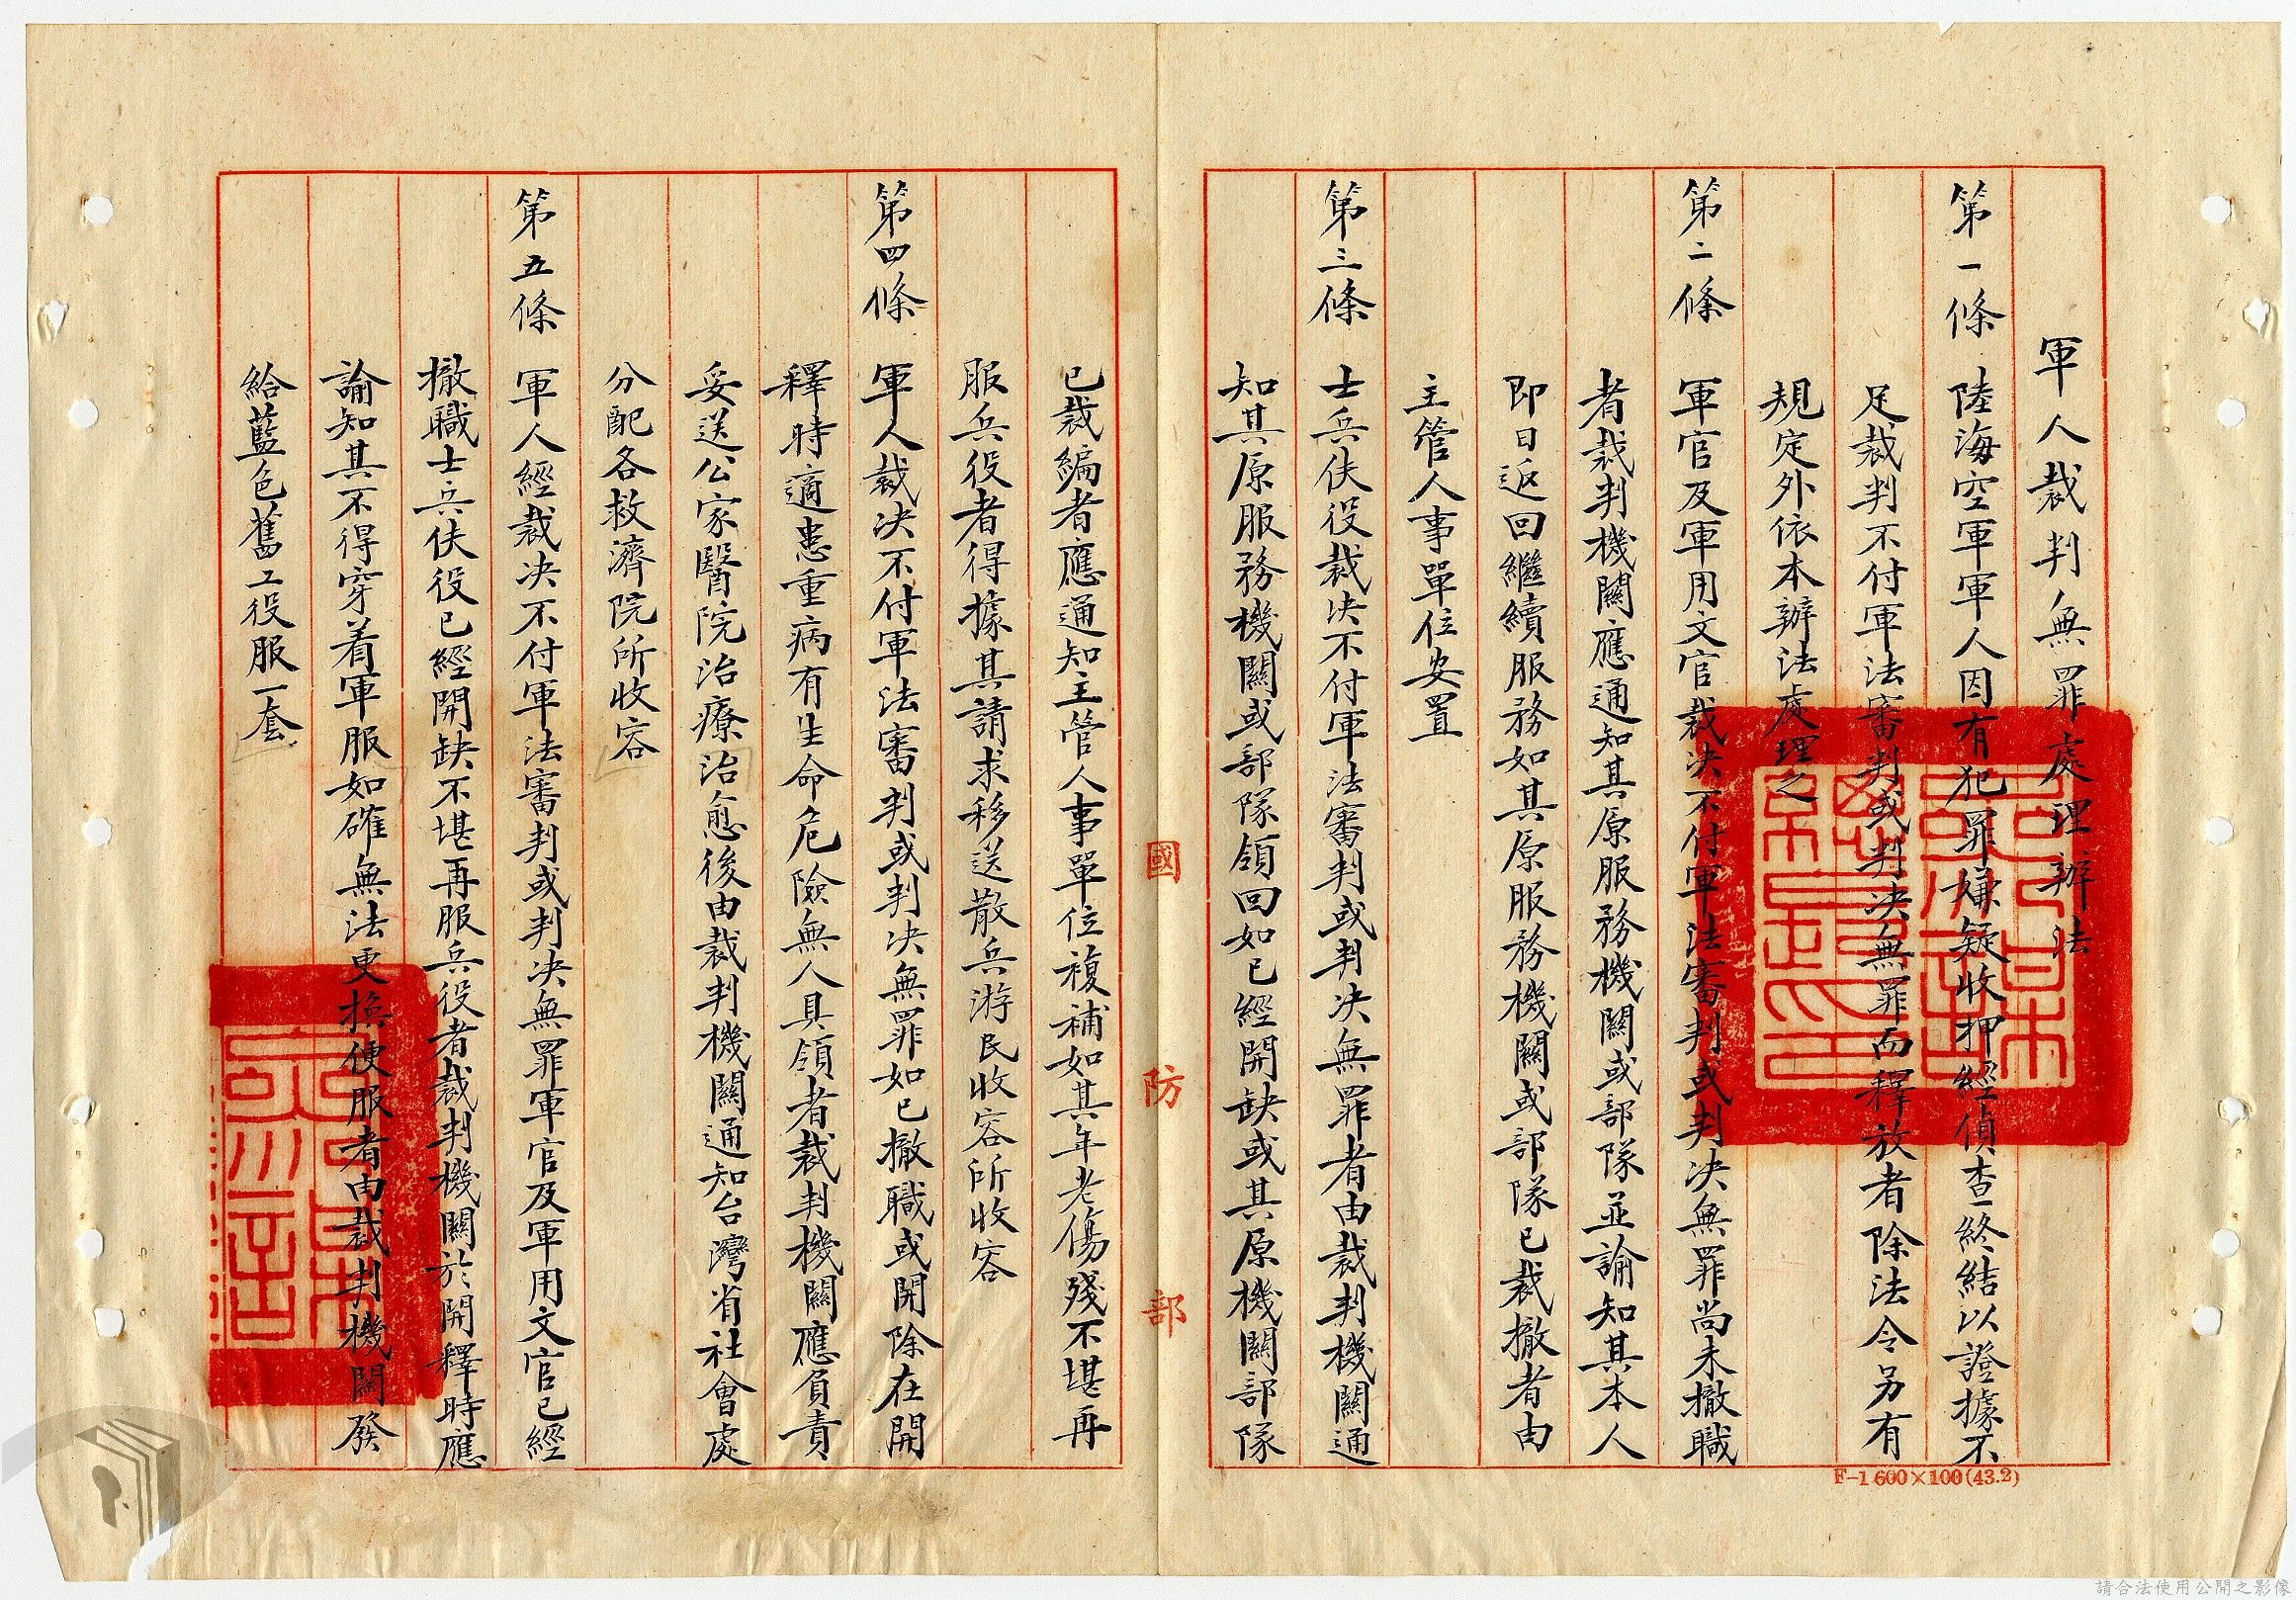 軍人裁判無罪處理辦法
第一條 陸海空軍軍人因有犯罪嫌疑收押經偵查終結以證據不
足裁判不付軍法審判或判决無罪而釋放者除法令另有
規定外依本辦法處理之
第二條 軍官及軍用文官裁决不付軍法審判或判决無罪尚未撤職
者裁判機關應通知其原服務機關或部隊並諭知其本人
即日返回繼續服務如其原服務機關或部隊已裁撤者由
主管人事單位安置
第三條 士兵伕役裁决不付軍法審判或判决無罪者由裁判機關通
知其原服務機關或部隊領回如已經開缺或其原機關部隊
已裁編者應通知主管人事單位複補如其年老傷殘不堪再
服兵役者得據其請求移送散兵游民收容所收容
第四條 軍人裁决不付軍法審判或判决無罪如已撤職或開除在開
釋時適患重病有生命危險無人具領者裁判機關應負責
妥送公家醫院治療治愈後由裁判機關通知台灣省社會處
分配各救濟院所收容
第五條 軍人經裁决不付軍法審判或判决無罪軍官及軍用文官已經
撤職士兵伕役已經開缺不堪再服兵役者裁判機關於開釋時應
諭知其不得穿着軍服如確無法更換便服者由裁判機關發
給藍色舊工役服一套
國防部
F-1 600×100(43.2)
請合法使用公開之影像